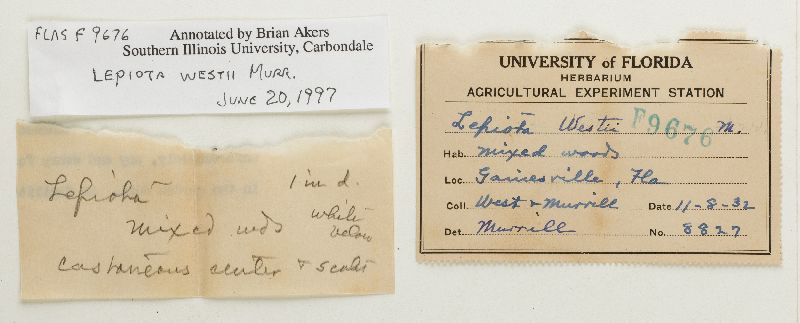 FLAS F 9676 Annotated by Brian Akers
Southern Illinois University, Carbondale
LEPIOTA WESTII MURR.
JUNE 20, 1997
Lepiota 1 in d.
mixed wds white
below
castaneous center & scales
UNIVERSITY of FLORIDA
HERBARIUM
AGRICULTURAL EXPERIMENT STATION
Lepiota Westii M.
F9676
Hab. mixed woods
Loc. Gainesville, Fla
Coll. West & Murrill Date 11-8-32
Det. Murrill No. 8827